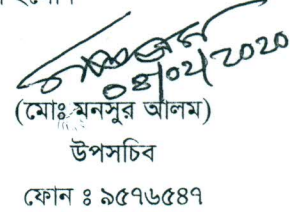 ০৪/০২/২০২০
(মোঃ মনসুর আলম)
উপসচিব
ফোন ঃ ৯৫৭৬৫৪৭